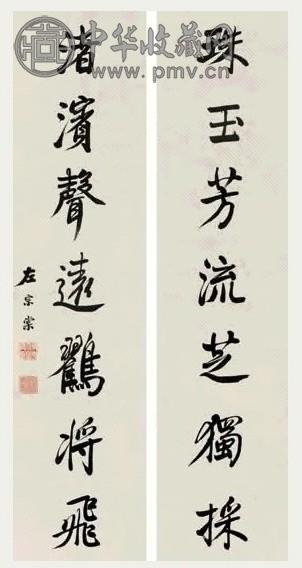 中华收藏网
www.pmv.cn
珠玉芳流芝獨採
渚濱聲遠將飛
左宗棠